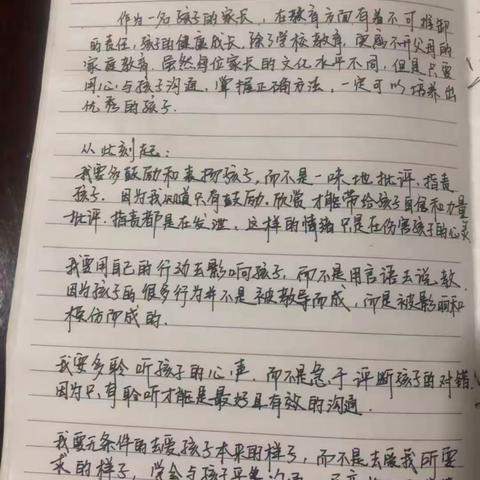 作为一名孩子的家长，在教育方面有着不可推卸
的责任，孩子的健康成长，除了学校教育，更离不开父母的
家庭教育，虽然每位家长的文化水平不同，但是只要
用心与孩子沟通，掌握正确方法，一定可以培养出
优秀的孩子.
从此刻起：
我要多鼓励和表扬孩子，而不是一味地批评.指责
孩子.因为我知道只有鼓励.欣赏才能带给孩子自信和力量
批评.指责都是在发泄，这样的情绪只是在伤害孩子的心灵
我要用自己的行动去影响孩子，而不是用言语去说教.
因为孩子的很多行为并不是被教导而成，而是被影响和
模仿而成的.
我要多聆听孩子的心声，而不是急于评断孩子的对错.
因为只有聆听才能是最好且有效的沟通.
我要无条件的去爱孩子本来的样子，而不是去爱我所要
求的样子，学会与孩子平等沟通